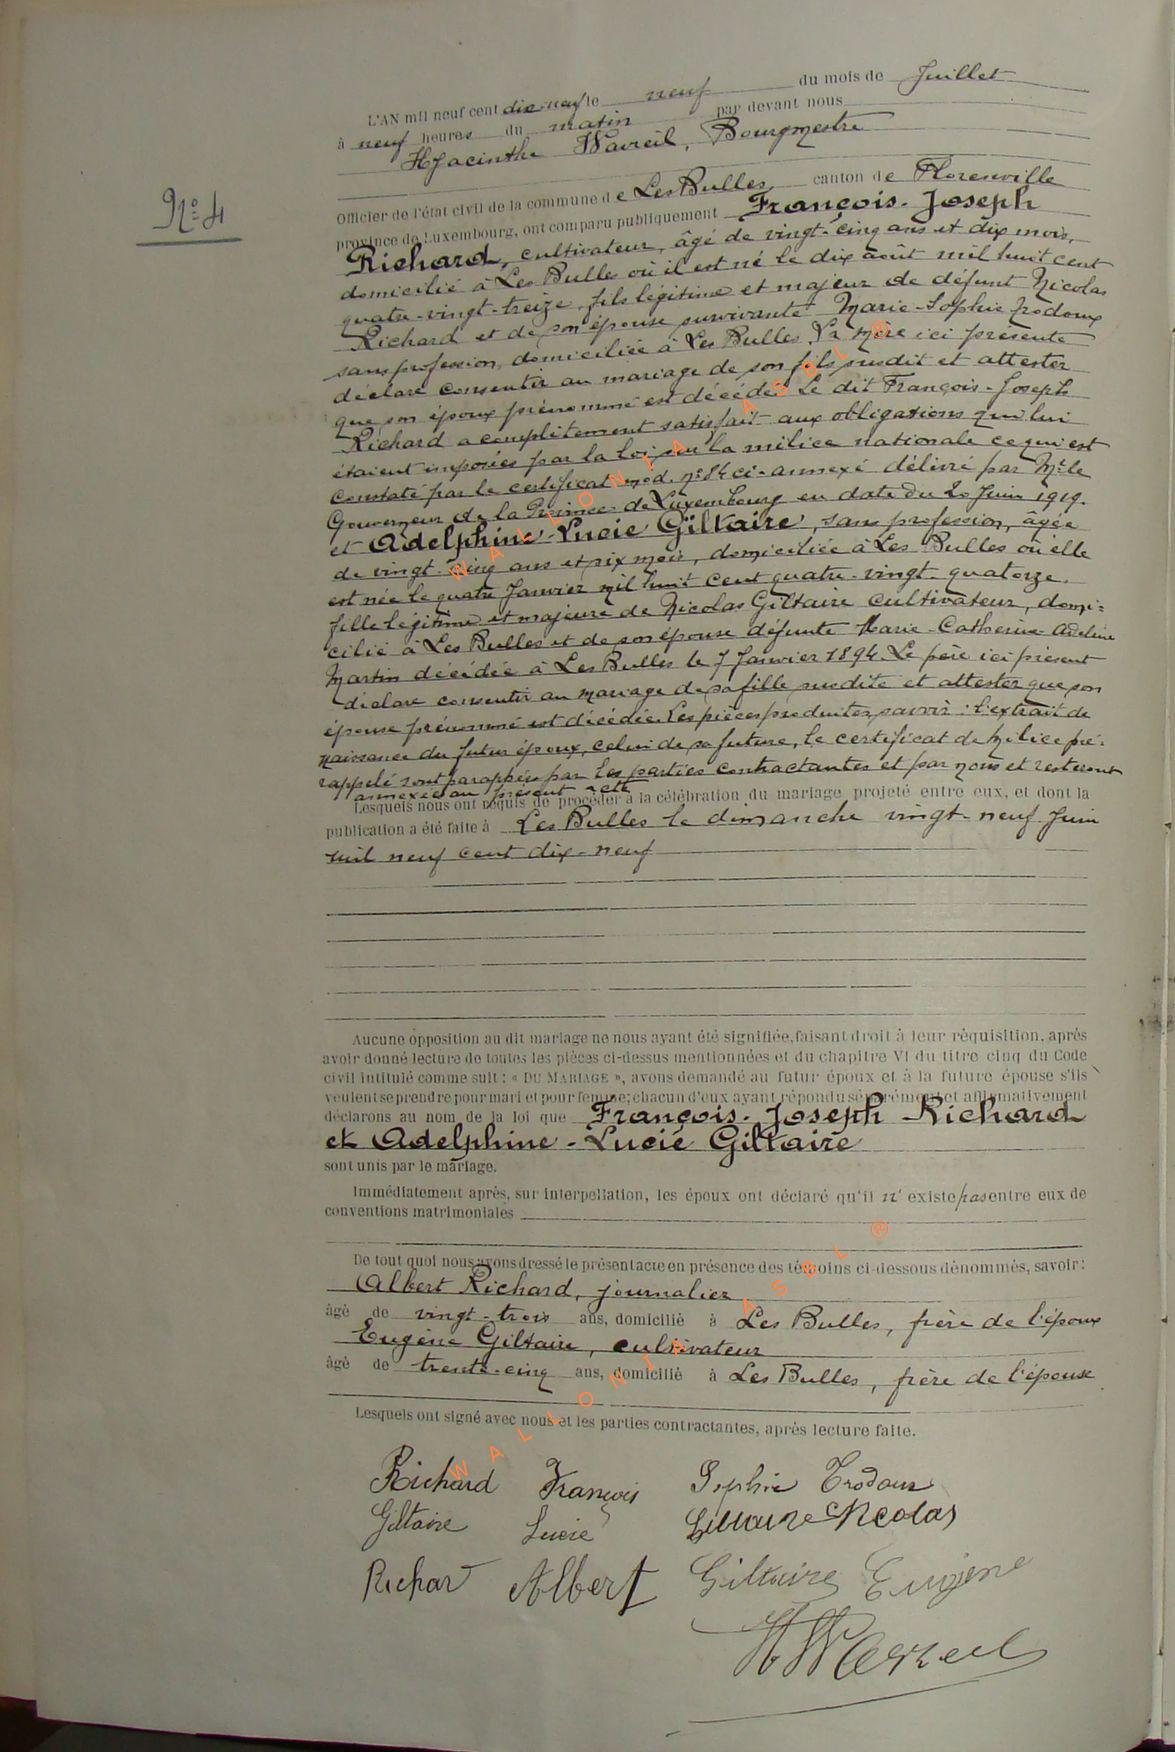 L'AN mil neuf cent dix-neuf le neuf du mois de Juillet
à neuf heures du matin par devant nous
Hyacinthe Wavreil, Bourgmestre
Nº 4
Officier de l'état civil de la commune de Les Bulles canton de Florenville
province de Luxembourg, ont comparu publiquement François-Joseph
Richard, cultivateur, âgé de vingt-cinq ans et dix mois,
domicilié à Les Bulles où il est né le dix août mil huit cent
quatre-vingt-treize, fils légitime et majeur de défunt Nicolas
Richard et de son épouse survivante Marie-Sophie Trodoux
sans profession, domiciliée à Les Bulles. La mère ici présente
déclare consentir au mariage de son fils susdit et attester
que son époux prénommé est décédé. Le dit François-Joseph
Richard a complètement satisfait aux obligations qui lui
étaient imposées par la loi sur la milice nationale ce qui est
constaté par le certificat mod. nº 84 ci-annexé délivré par Mr le
Gouverneur de la Province de Luxembourg en date du 20 Juin 1919.
et Adelphine-Lucie Giltaire, sans profession, âgée
de vingt-cinq ans et six mois, domiciliée à Les Bulles où elle
est née le quatre Janvier mil huit cent quatre-vingt-quatorze.
fille légitime et majeure de Nicolas Giltaire cultivateur, domi=
cilié à Les Bulles et de son épouse défunte Marie-Catherine Adeline
Martin décédée à Les Bulles le 7 Janvier 1894. Le père ici présent
déclare consentir au mariage de sa fille susdite et attester que son
épouse prénommé est décédée. Les pièces produites, savoir: l'extrait de
naissance du futur époux, celui de sa future, le certificat de milice pré-
rappelé sont paraphées par les parties contractantes et par nous et resteront
annexées au présent acte
Lesquels nous ont requis de procéder à la célébration du mariage projeté entre eux, et dont la
publication a été faite à Les Bulles le dimanche vingt-neuf Juin
mil neuf cent dix-neuf
Aucune opposition au dit mariage ne nous ayant été signifiée, faisant droit à leur réquisition, après
avoir donné lecture de toutes les pièces ci-dessus mentionnées et du chapitre VI du titre cinq du Code
civil intitulé comme suit: « DU MARIAGE », avons demandé au futur époux et à la future épouse s'ils
veulent se prendre pour mari et pour femme; chacun d'eux ayant répondu séparément et affirmativement
déclarons au nom de la loi que François-Joseph Richard
et Adelphine-Lucie Giltaire
sont unis par le mariage.
Immédiatement après, sur interpellation, les époux ont déclaré qu'il n'existe pas entre eux de
conventions matrimoniales
De tout quoi nous avons dressé le présent acte en présence des témoins ci-dessous dénommés, savoir:
Albert Richard, journalier
âgé de vingt-trois ans, domicilié à Les Bulles, frère de l'époux
Eugène Giltaire, cultivateur
âgé de trente-cinq ans, domicilié à Les Bulles, frère de l'épouse
Lesquels ont signé avec nous et les parties contractantes, après lecture faite.
Richard François Sophie Trodoux
Giltaire Lucie Giltaire Nicolas
Richar Albert Giltaire Eugène
H Wavreil
WALLONIA ASBL ®
WALLONIA ASBL ®